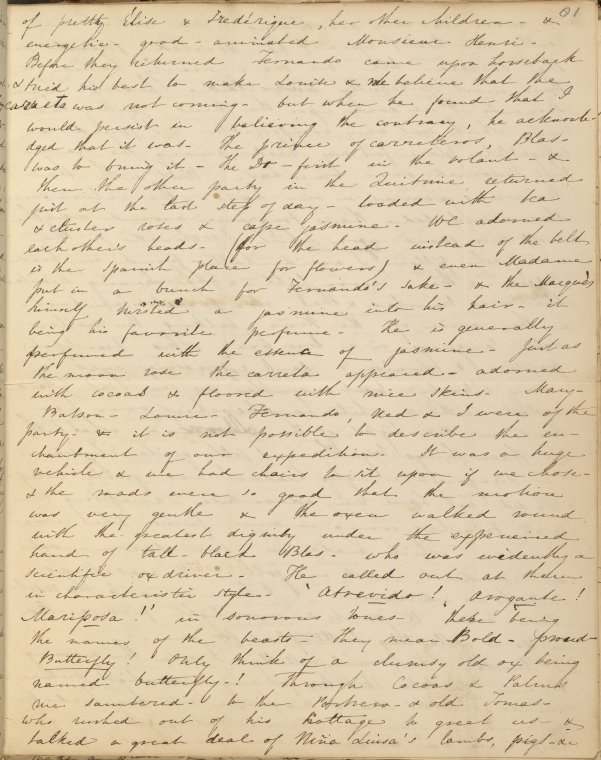 81
of pretty Élise & Frederique, her other children - &
energetic - good - animated Monsieur Henri -
Before they returned Fernando came upon horseback
& tried his best to make Louise & me believe that the
carreta was not coming - but when he found that I
would persist in believing the contrary, he acknowle-
dged that it was - The prince of carreteros, Blas -
was to bring it - The Dr - first in the volant - &
then the other party in the Quitrine, returned
just at the last step of day - loaded with tea
& cluster roses & cape jasmine - We adorned
each other's heads - (for the head instead of the belt
is the Spanish place for flowers) & even Madame
put in a bunch for Fernando's sake - & the Marquis
himself twisted a jasmine into his hair - it
being his favorite perfume - He is generally
perfumed with the essence of jasmine - Just as
the moon rose the carreta appeared - adorned
with cocoas & floored with nice skins. Mary -
Batson - Louise - Fernando, Ned & I were of the
party - & it is not possible to describe the en-
chantment of our expedition. It was a huge
vehicle & we had chairs to sit upon if we chose -
& the roads were so good that the motion
was very gentle & the oxen walked round
with the greatest dignity under the experienced
hand of tall - black Blas - who was evidently a
scientific ox driver - He called out at them
in characteristic style - 'Atrevido! Arogante!
Mariposa!' in sonorous tones - these being
the names of the beasts - They mean Bold - proud -
Butterfly! Only think of a clumsy old ox being
named butterfly -! Through Cocoas & Palms
we sauntered - to the Potrero - & old Tomas -
who rushed out of his cottage to greet us - &
talked a great deal of Niña Luisa's lambs, pigs - &c